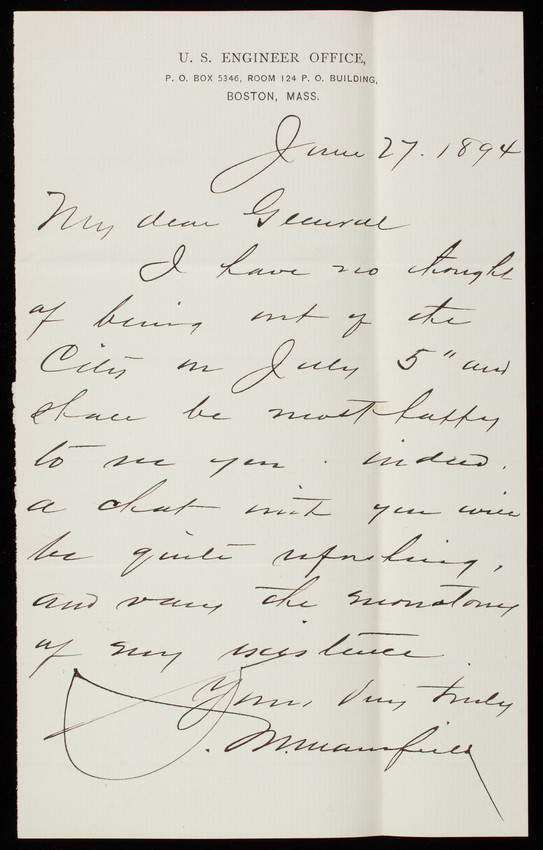 U. S. ENGINEER OFFICE,
P. O. BOX 5346, ROOM 124 P. O. BUILDING,
BOSTON, MASS.
June 27. 1894
My dear General
I have no thought
of being out of the
City on July 5" and
shall be most happy
to see you. indeed,
a chat with you will
be quite refreshing,
and vary the monotony
of my existence
Yours very truly
S. M. Mansfield